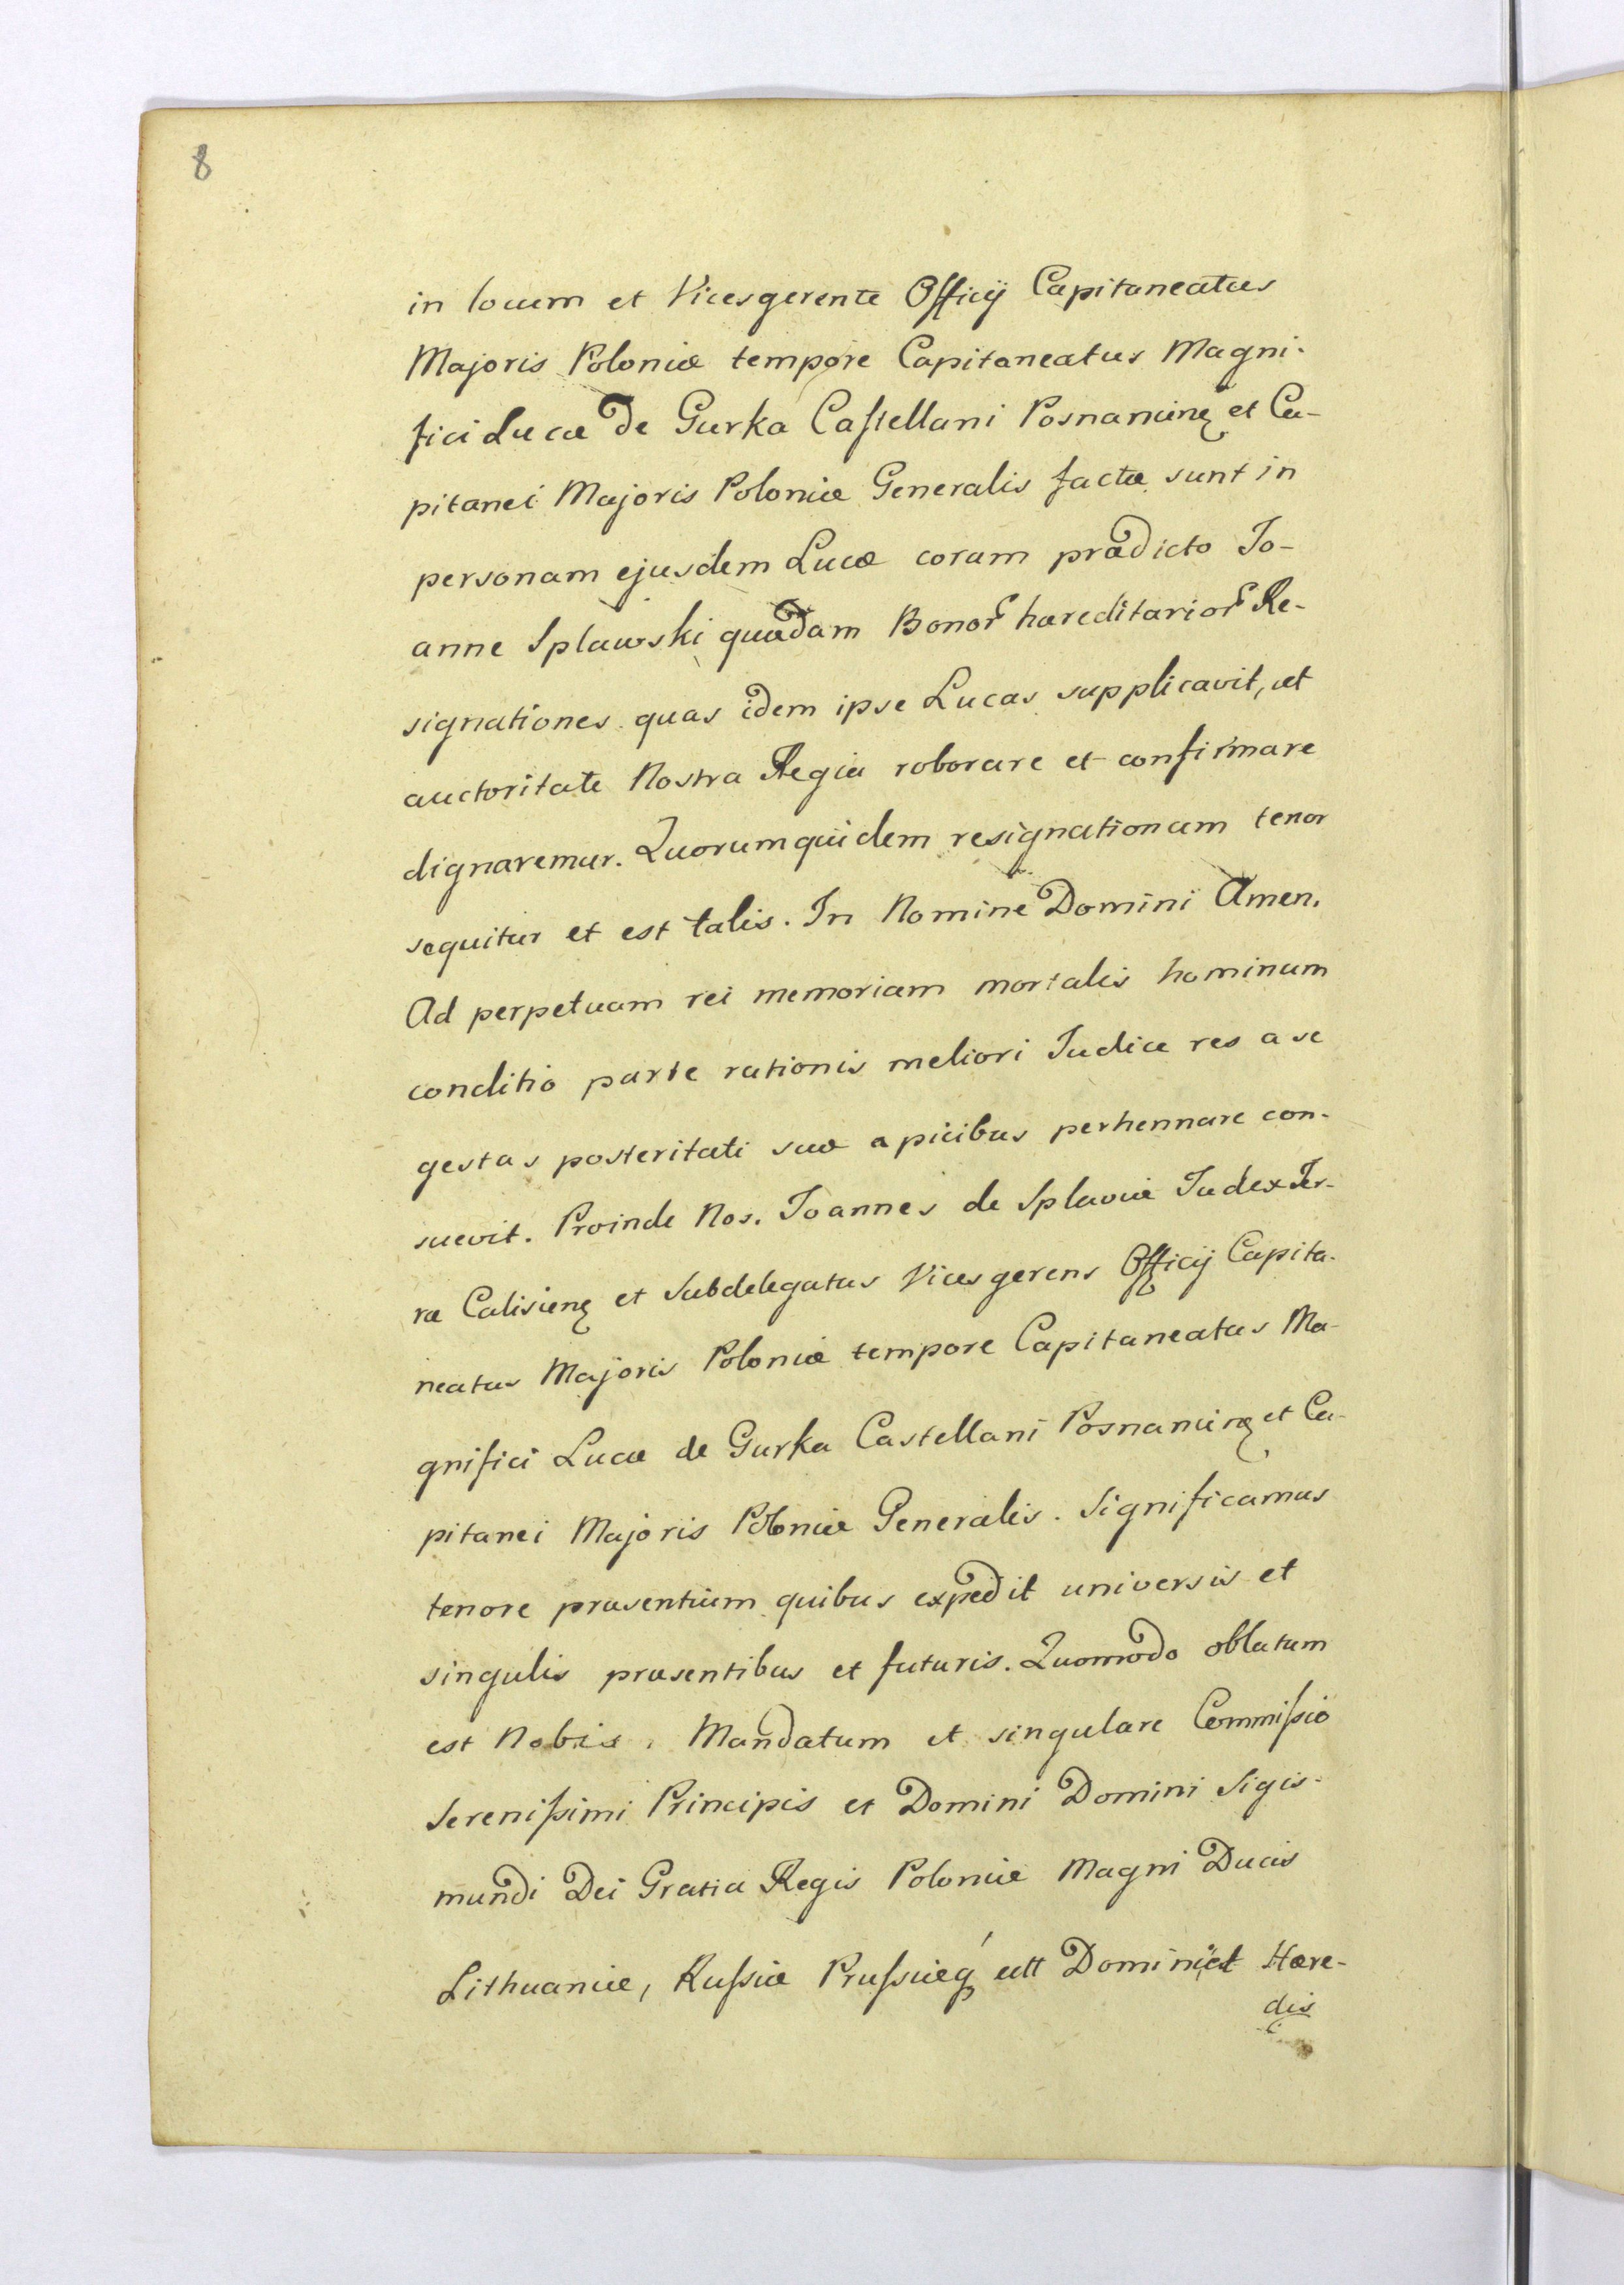 8
in locum et Vicesgerente Officij Capitaneatus
Majoris Poloniæ tempore Capitaneatus Magni-
fici Lucæ de Gurka Caſtellani Posnanienꝫ et Ca-
pitanei Majoris Poloniæ Generalis factæ sunt in
personam ejusdem Lucæ coram prædicto Jo-
anne Splawski quædam Bonorꝫ hæreditariorꝫ Re-
signationes quas idem ipse Lucas supplicavit, ut
auctoritate Nostra Regia roborare et confirmare
dignaremur. Quorumquidem resignationum tenor
sequitur et est talis. In Nomine Domini Amen.
Ad perpetuam rei memoriam mortalis hominum
conditio parte rationis meliori Judice res a se
gestas posteritati suæ apicibus perhennare con-
suevit. Proinde Nos. Joannes de Splavie Judex Ter-
ræ Calisienꝫ et Subdelegatus Vicesgerens Officij Capita-
neatus Majoris Poloniæ tempore Capitaneatus Ma-
gnifici Lucæ de Gurka Castellani Posnanienꝫ et Ca-
pitanei Majoris Poloniæ Generalis. Significamus
tenore præsentium quibus expedit universis et
singulis præsentibus et futuris. Quomodo oblatum
est Nobis, Mandatum et singulare Commiſsio
Sereniſsimi Principis et Domini Domini Sigis-
mundi Dei Gratia Regis Poloniæ Magni Ducis
Lithuaniæ, Ruſsiæ Pruſsiæq́ȝ Domini et Hære-
dis